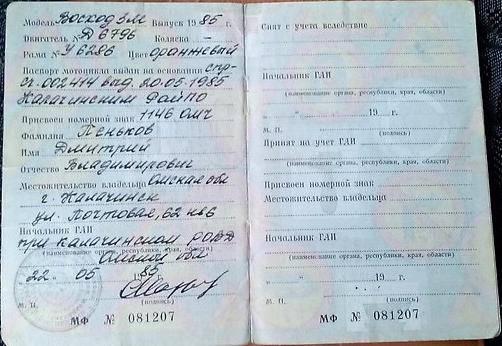 Модель Восход 3м Выпуск 1985 г.
Двигатель № Д 6796 Коляска –
Рама № У 6286 Цвет оранжевый
Паспорт мотоцикла выдан на основании спр-
сч. 002414 выд. 20.05.1985
Калачинским Райпо
Присвоен номерной знак 1146 омч
Фамилия Пеньков
Имя Дмитрий
Отчество Владимирович
Местожительство владельца Омская обл
г. Калачинск
ул. Почтовая, 62 кв 6
Начальник ГАИ
при Калачинском РОВД
Омской обл
(наименование органа, республики, края, области)
22 05 1985
М. П. (подпись)
МФ № 081207
Снят с учета вследствие
Начальник ГАИ
(наименование органа, республики, края, области)
" " 19 г.
М. П. (подпись)
Принят на учет ГАИ
(наименование органа, республики, края, области)
Присвоен номерной знак
Местожительство владельца
Начальник ГАИ
(наименование органа, республики, края, области)
" " 19 г.
М. П. (подпись)
МФ № 081207